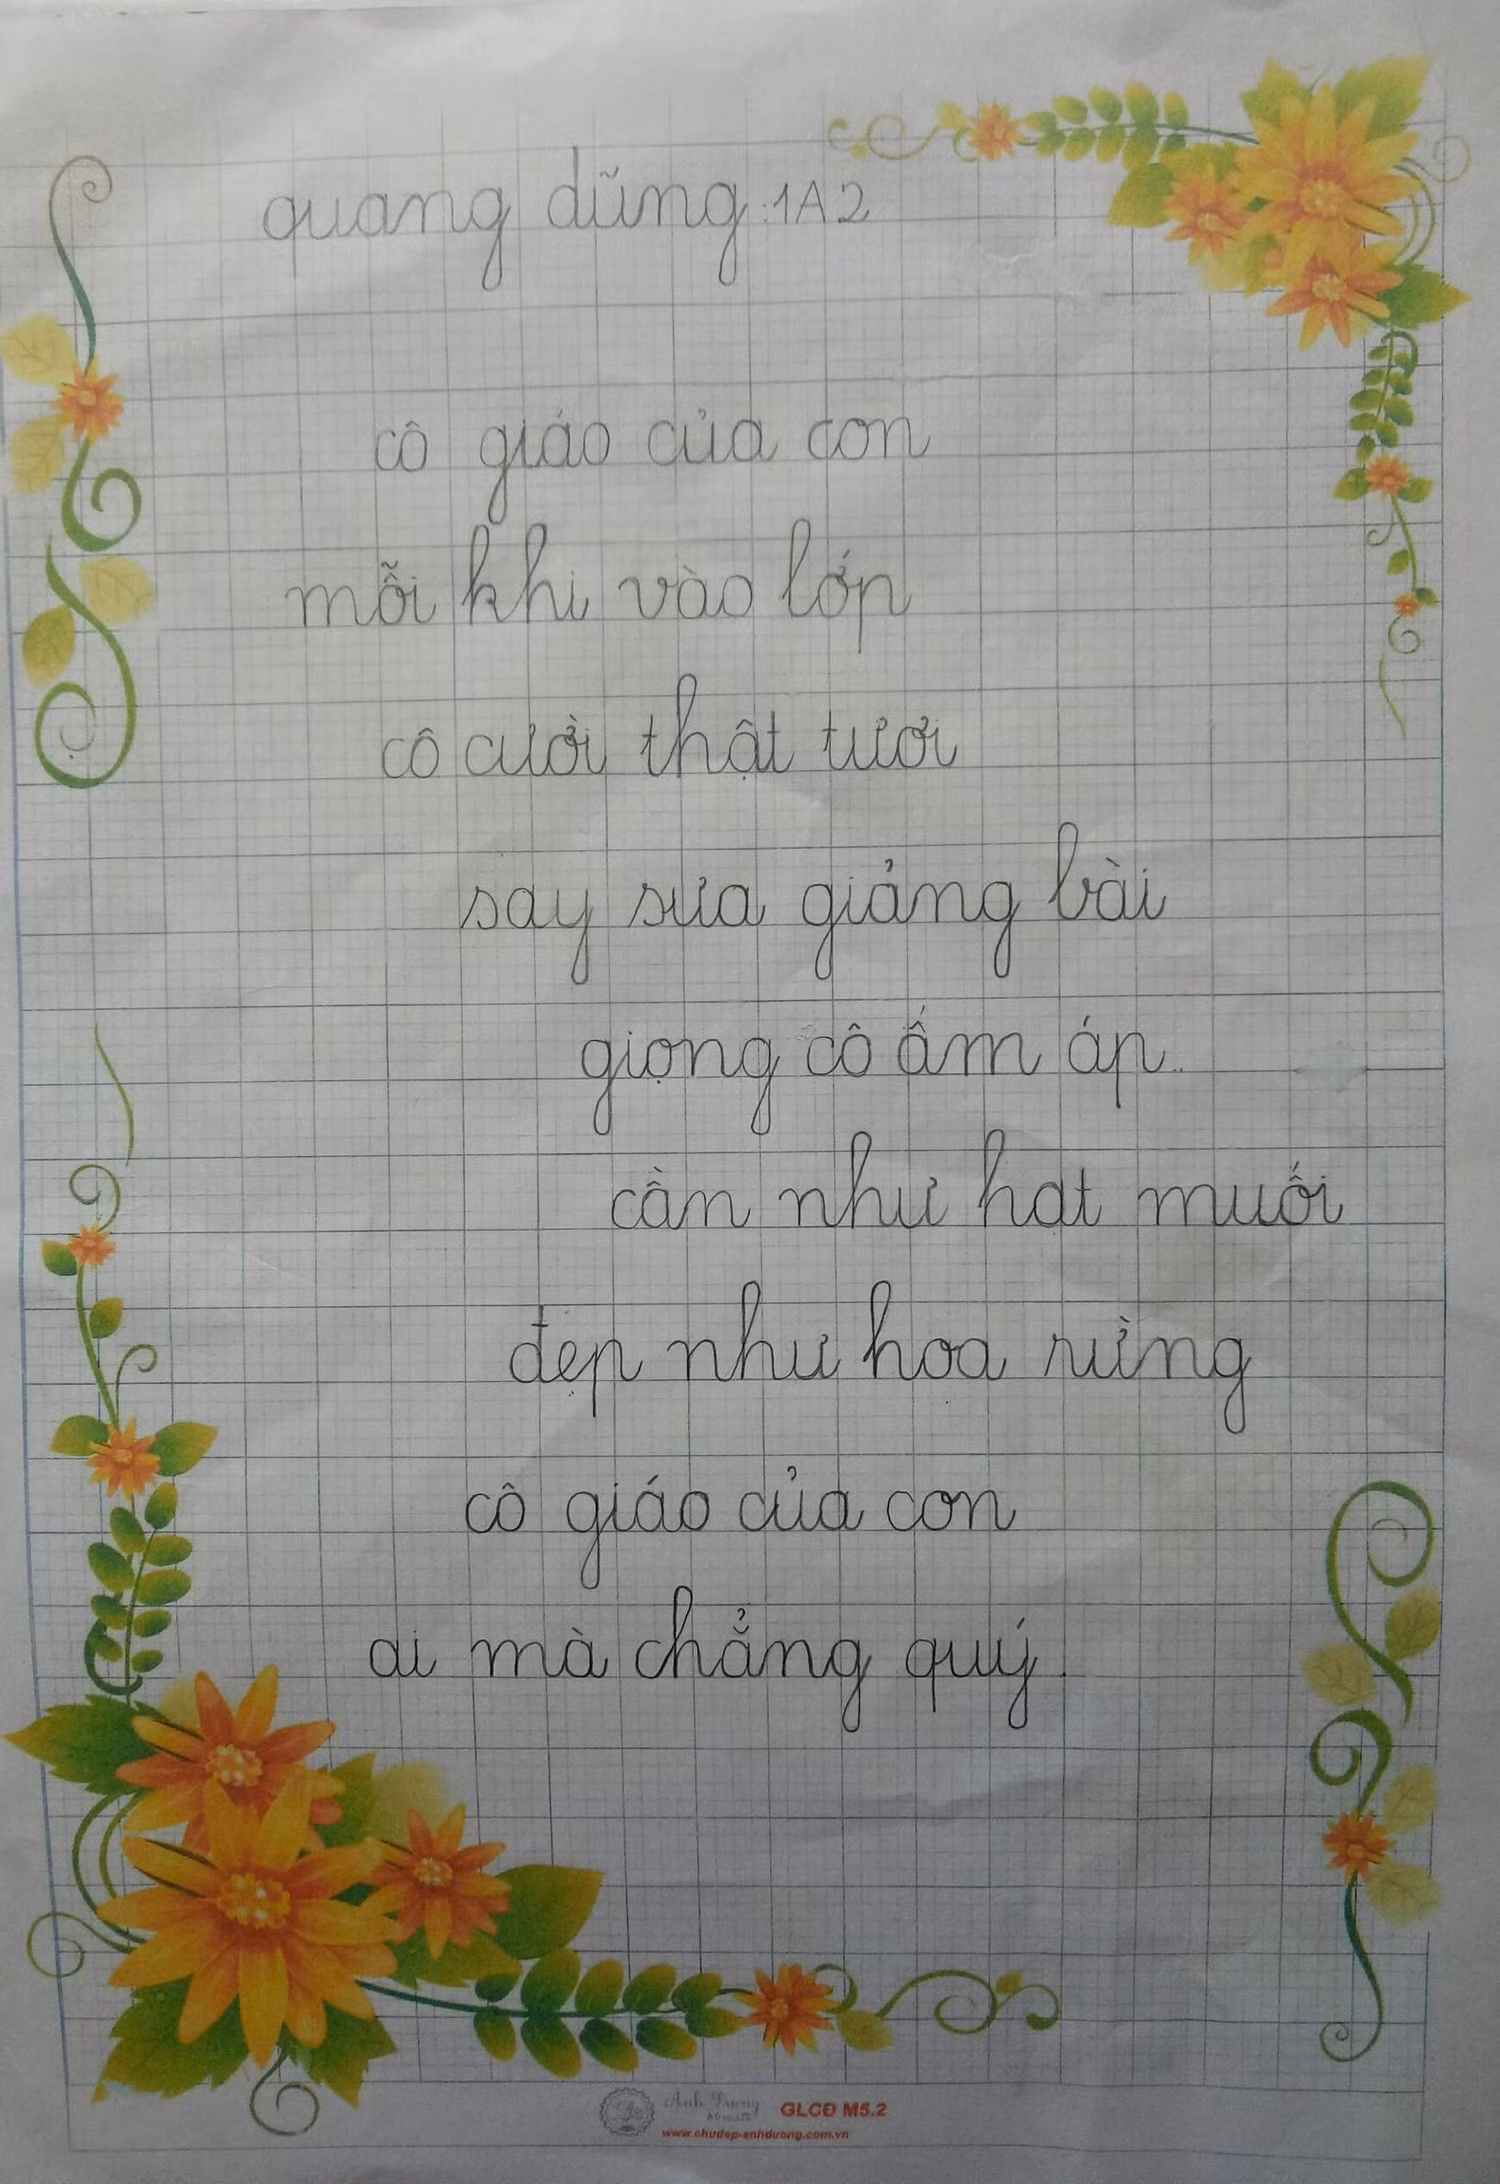 quang dũng :1A2
cô giáo của con
mỗi khi vào lớp
cô cười thật tươi
say sưa giảng bài
giọng cô ấm áp..
cần như hạt muối
đẹp như hoa rừng
cô giáo của con
ai mà chẳng quý.
Ánh Dương
GLCĐ M5.2
www.chudep-anhduong.com.vn